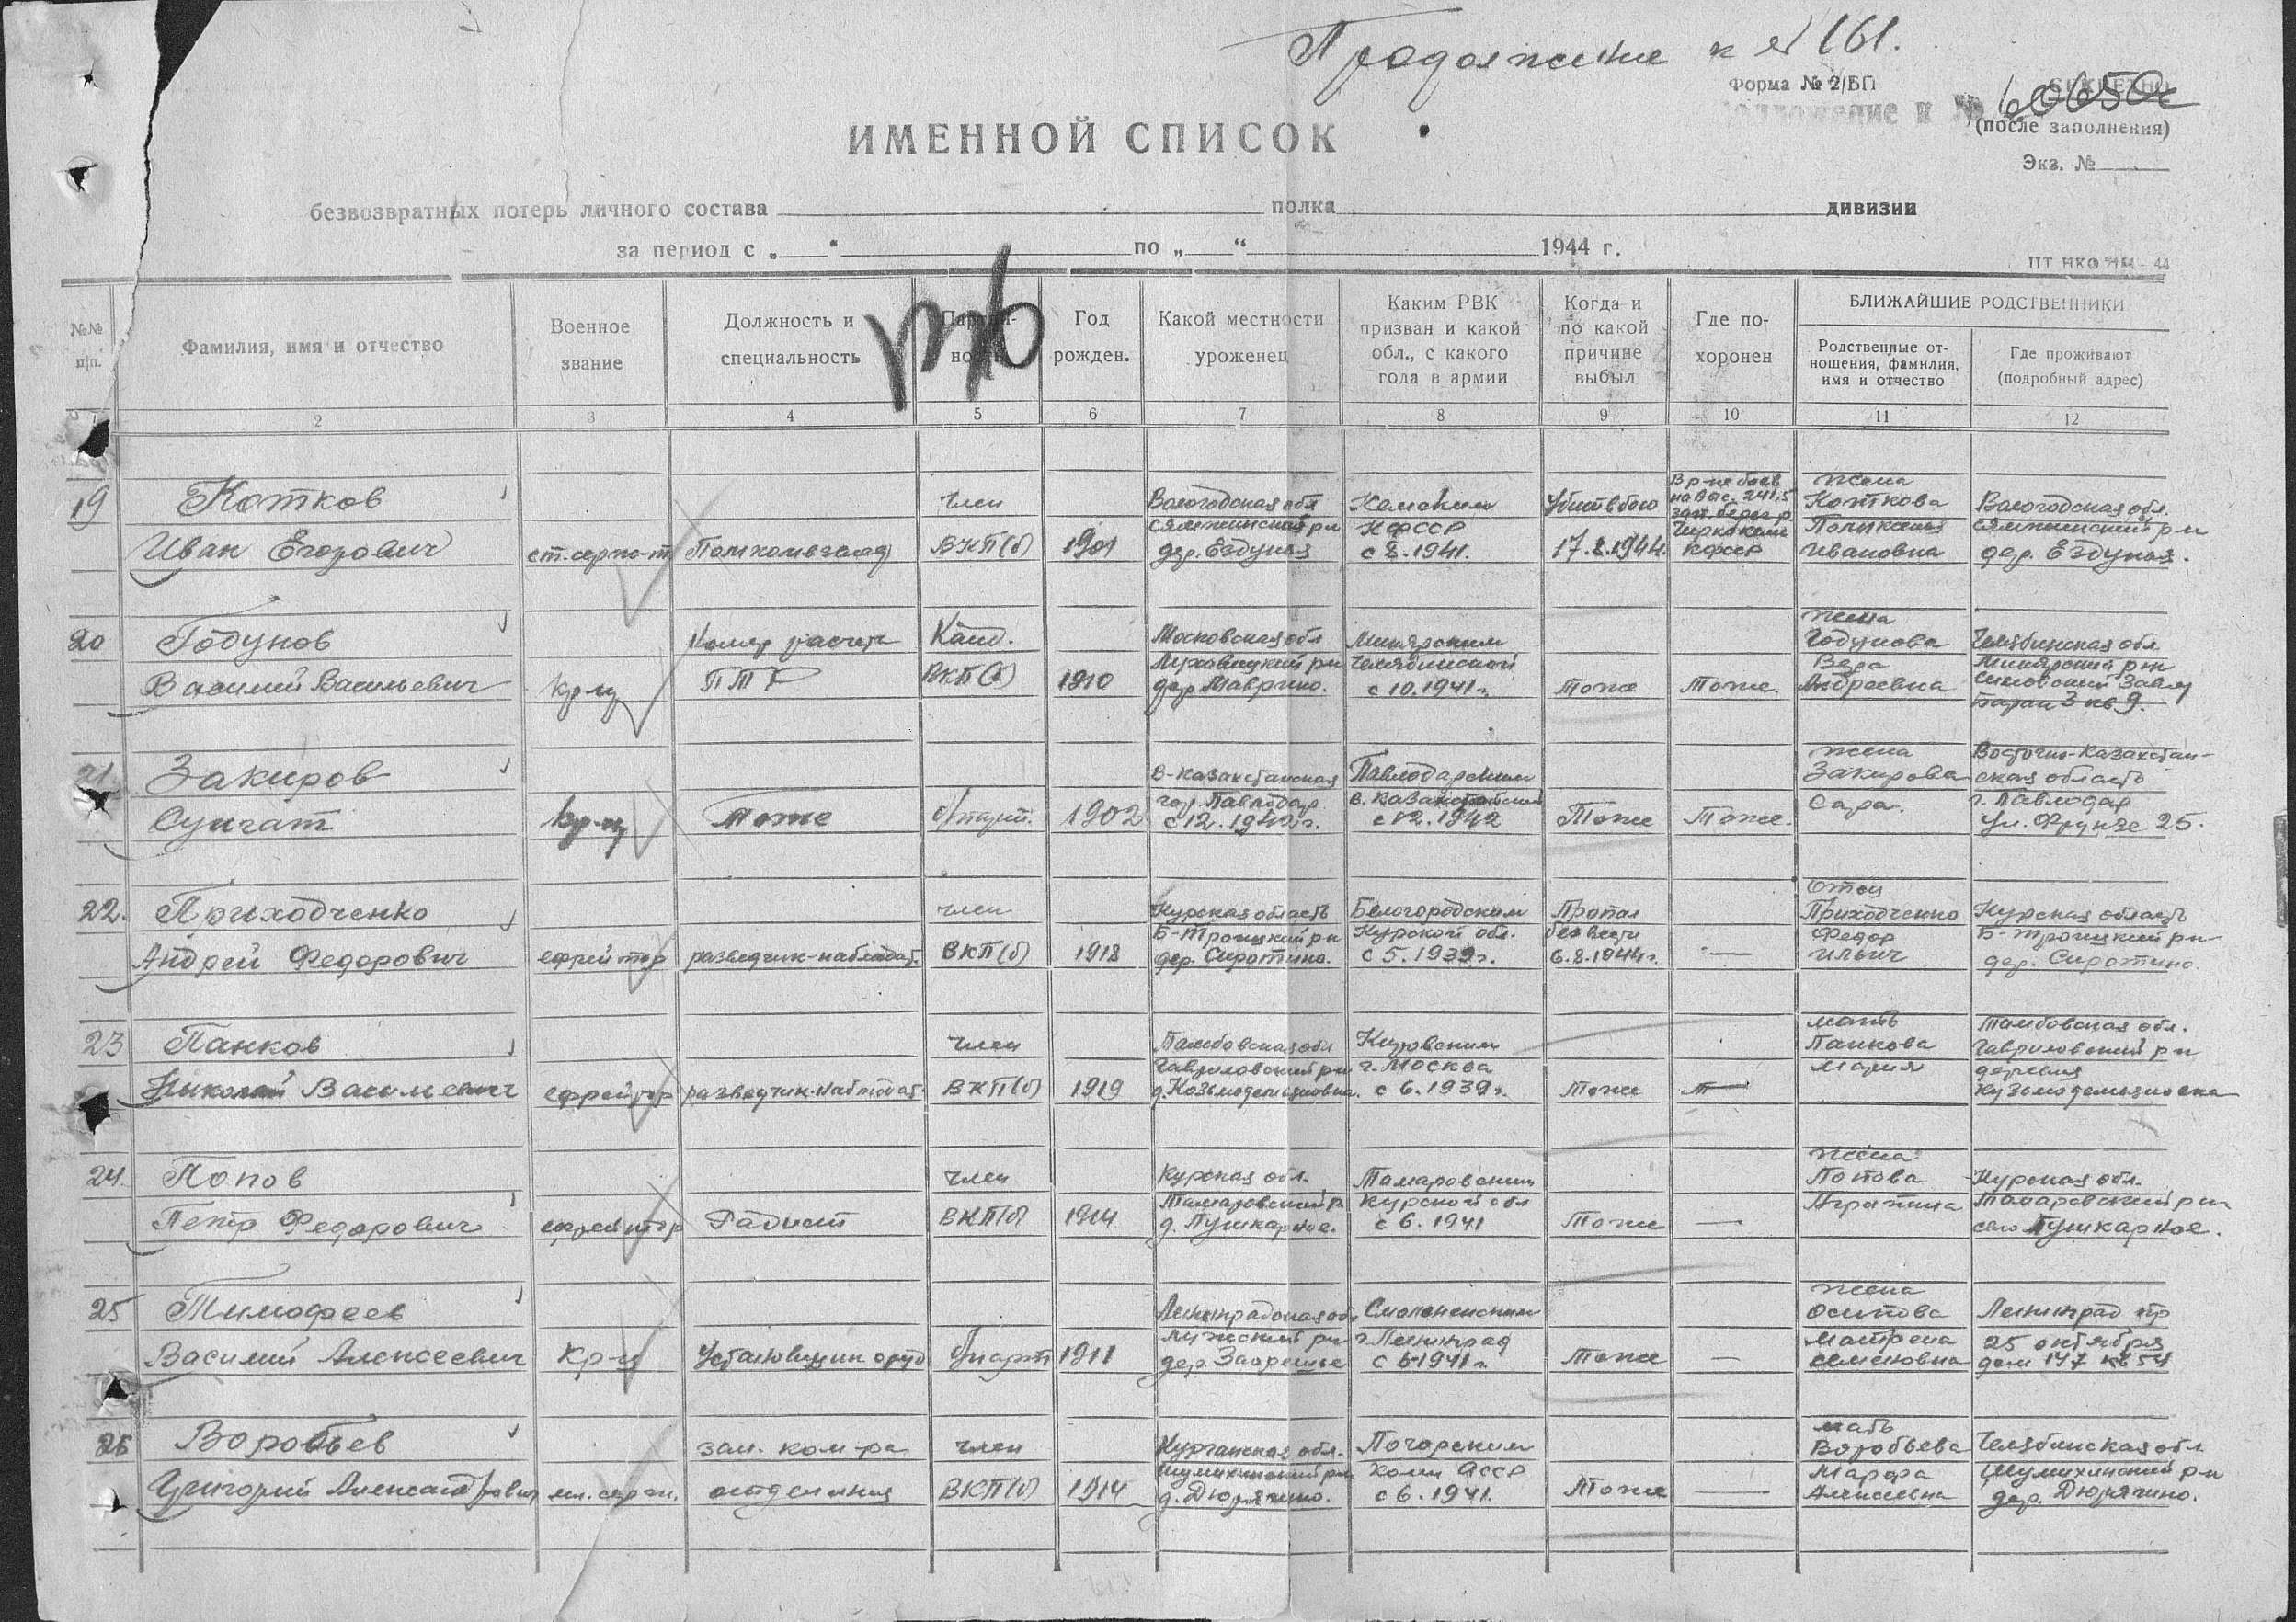 Продолжение к № 161.
Форма № 2/БП
СЕКРЕТНО
60650с
(после заполнения)
Экз. №
ИМЕННОЙ СПИСОК
безвозвратных потерь личного состава полка дивизии
за период с „ “ по „ “ 1944 г.
№№ п/п.
Фамилия, имя и отчество
Военное звание
Должность и специальность
Партий-ность
Год рожден.
Какой местности уроженец
Каким РВК призван и какой обл., с какого года в армии
Когда и по какой причине выбыл
Где по-хоронен
БЛИЖАЙШИЕ РОДСТВЕННИКИ
Родственные от-ношения, фамилия, имя и отчество
Где проживают (подробный адрес)
1 2 3 4 5 6 7 8 9 10 11 12
В р-не боев жена
19 Котков член Вологодская обл Кемским Убит в бою на выс. 241,5 Коткова Вологодская обл.
Сямженский р-н КФССР Сямженский р-н
Иван Егорович ст.серж-т Помкомвзвод ВКП(б) 1901 дер. Ездунья с 8.1941. 17.8.1944 КФССР Ивановна дер. Ездунья.
жена
20 Годунов Номер расчета Канд. Московская обл Миньярским Годунова Челябинская обл
Луховицкий р-н Челябинской Вера Миньярский р-н
Василий Васильевич кр-ц ПТР ВКП(б) 1910 дер. Маврино. с 10.1941 г. тоже тоже. Андреевна Симовский завод
Барак 3 кв 9.
жена Восточно-Казахстан-
21. Закиров В-Казахстанская Павлодарским Закирова ская область
гор. Павлодар В. Казахстанской Сара. г. Павлодар
Сунгат кр-ц тоже б/парт. 1902 с 12.1942 г. с 12.1942 Тоже Тоже. ул. Фрунзе 25.
Отец
22. Приходченко член Курская область Белгородским Пропал Приходченко Курская область
Б-Троицкий р-н Курской обл. без вести Федор Б-Троицкий р-н
Андрей Федорович ефрейтор разведчик-наблюдат. ВКП(б) 1918 дер. Сиротино. с 5.1939 г. 6.8.1944 г. — Ильич дер. Сиротино.
мать Тамбовская обл.
23 Панков член Тамбовская обл Кировским Панкова Гавриловский р-н
Гавриловский р-н г. Москва Мария деревня
Николай Васильевич ефрейтор разведчик-наблюдат. ВКП(б) 1919 д. Козьмодемьяновка. с 6.1939 г. тоже — Кузьмодемьяновка
жена
24. Попов член Курская обл. Томаровским Попова Курская обл.
Томаровский р-н Курской обл Агрипина Томаровский р-н
Петр Федорович ефрейтор Радист ВКП(б) 1914 д. Пушкарное. с 6.1941 Тоже — село Пушкарное.
жена
25 Тимофеев Ленинградская обл. Смольненским Осипова Ленинград пр
Лужский р-н г. Ленинград Матрена 25 октября
Василий Алексеевич кр-ц Установщик оруд б/парт 1911 дер. Заоречье с 6 1941 г. тоже — Семеновна дом 147 кв 54
мать
26 Воробьев зам. ком-ра член Курганская обл. Воробьева Челябинская обл.
Шумихинский р-н Коми АССР Марфа Шумихинский р-н
Григорий Александрович мл. серж. отделения ВКП(б) 1914 д. Дюрягино. с 6.1941. Тоже — Алексеевна дер. Дюрягино.